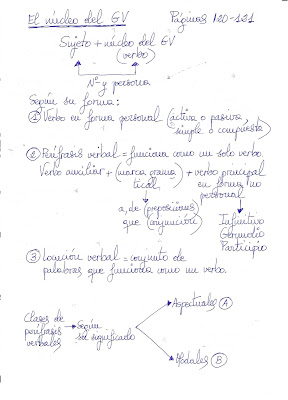 El núcleo del GV Páginas 120-121
Sujeto + núcleo del GV
(verbo)
Nº y persona
Según su forma:
① Verbo en forma personal (activa o pasiva,
simple o compuesta)
② Perífrasis verbal = funciona como un solo verbo
Verbo auxiliar + (marca grama- + verbo principal
tical) en forma no
personal
a, de (preposiciones)
que (conjunción)
Infinitivo
Gerundio
Participio
③ Locución verbal = conjunto de
palabras que funciona como un verbo.
Clases de
perífrasis
verbales
Según
su significado
Aspectuales Ⓐ
Modales Ⓑ